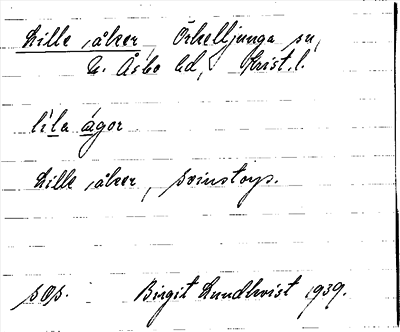 Lille åker, Örkelljunga sn,
N. Åsbo hd, Krist. l.
líla ágor
Lille åker,
sOs. Birgit Lundkvist 1939.